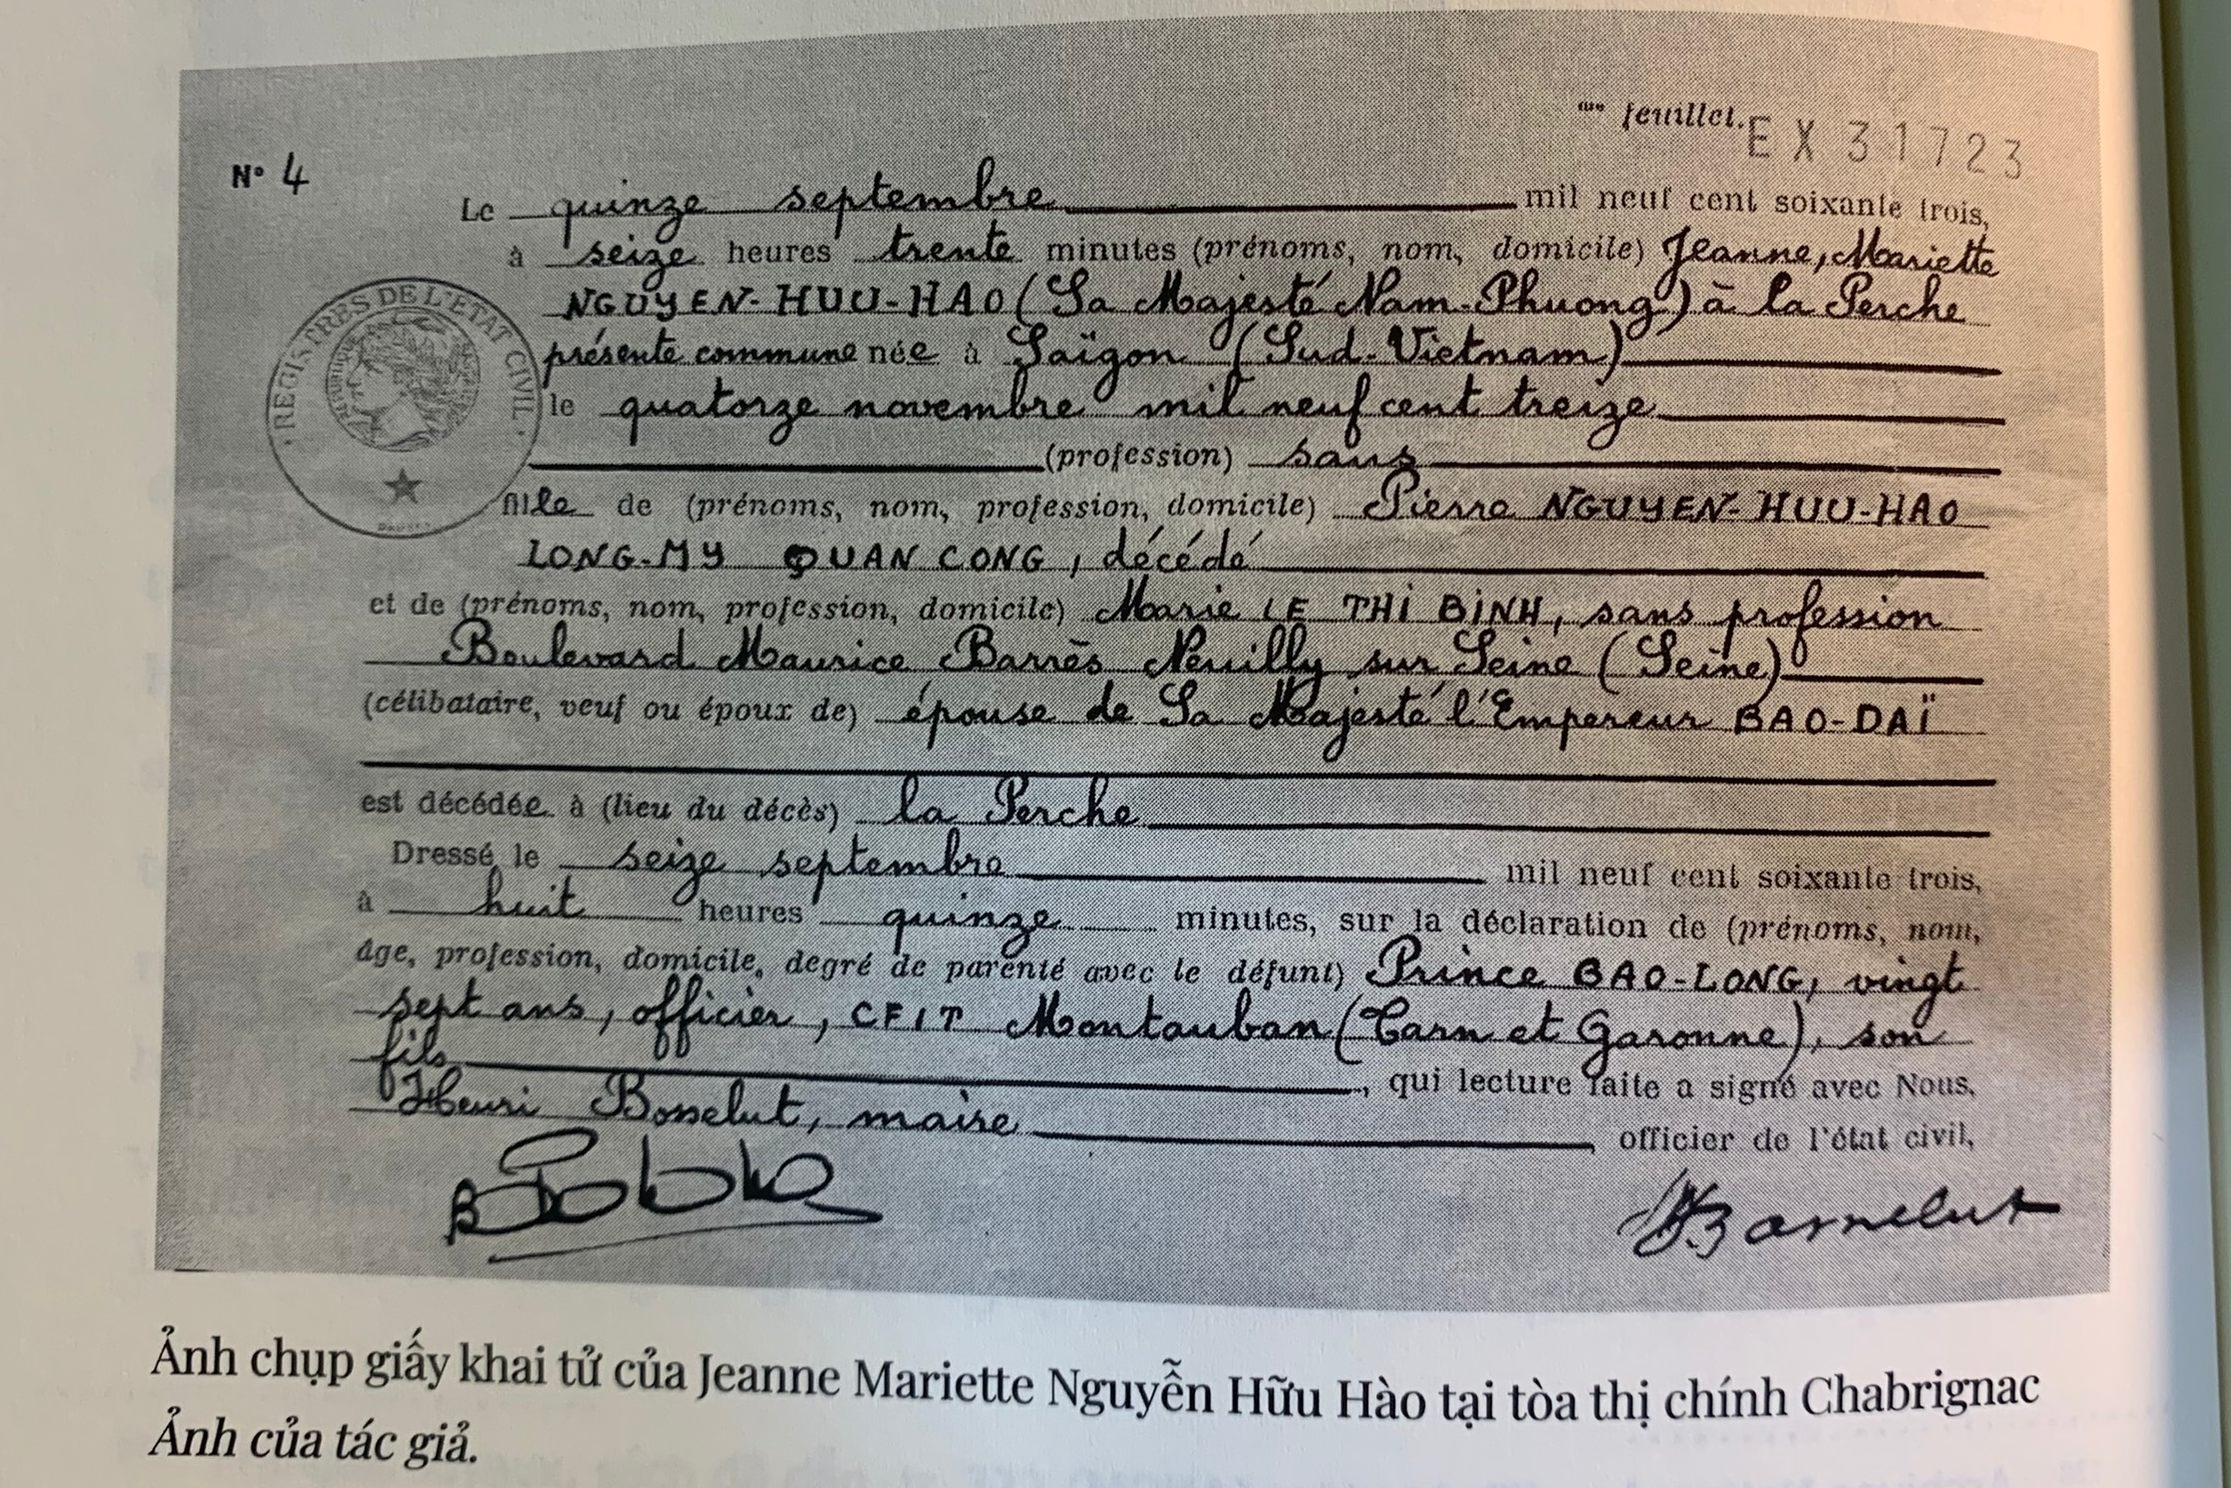 feuillet. EX 31723
N° 4
Le quinze septembre mil neuf cent soixante trois,
à seize heures trente minutes (prénoms, nom, domicile) Jeanne, Mariette
NGUYEN-HUU-HAO (Sa Majesté Nam-Phuong) à la Perche
présente commune née à Saïgon (Sud-Vietnam)
le quatorze novembre mil neuf cent treize
(profession) sans
REGISTRES DE L'ETAT CIVIL
fille de (prénoms, nom, profession, domicile) Pierre NGUYEN-HUU-HAO
LONG-MY QUAN CONG, décédé
et de (prénoms, nom, profession, domicile) Marie LE THI BINH, sans profession
Boulevard Maurice Barrès Neuilly sur Seine (Seine)
(célibataire, veuf ou époux de) épouse de Sa Majesté l'Empereur BAO-DAÏ
est décédée à (lieu du décès) la Perche
Dressé le seize septembre mil neuf cent soixante trois,
à huit heures quinze minutes, sur la déclaration de (prénoms, nom,
âge, profession, domicile, degré de parenté avec le défunt) Prince BAO-LONG, vingt
sept ans, officier, CFIT Montauban (Tarn et Garonne), son
fils, qui lecture faite a signé avec Nous,
Henri Bosselut, maire officier de l'état civil,
Ảnh chụp giấy khai tử của Jeanne Mariette Nguyễn Hữu Hào tại tòa thị chính Chabrignac
Ảnh của tác giả.